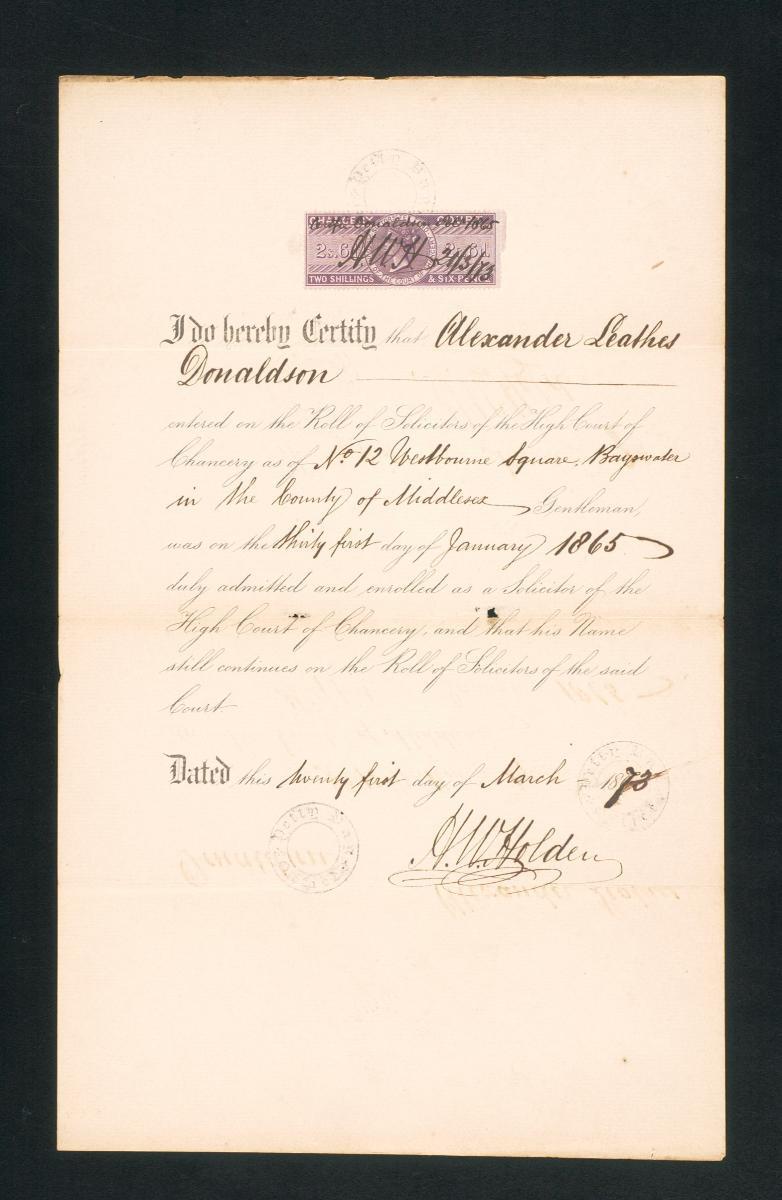 Petty Bag
CHANCERY
2s.6d
TWO SHILLINGS & SIX-PENCE
Donaldson 1865
H W H 21/3/73
I do hereby Certify that Alexander Leathes
Donaldson
entered on the Roll of Solicitors of the High Court of
Chancery as of No. 12 Westbourne Square, Bayswater
in the County of Middlesex Gentleman,
was on the thirty first day of January 1865
duly admitted and enrolled as a Solicitor of the
High Court of Chancery, and that his Name
still continues on the Roll of Solicitors of the said
Court.
Dated this twenty first day of March 1873
H. W. Holden
Petty Bag
Petty Bag